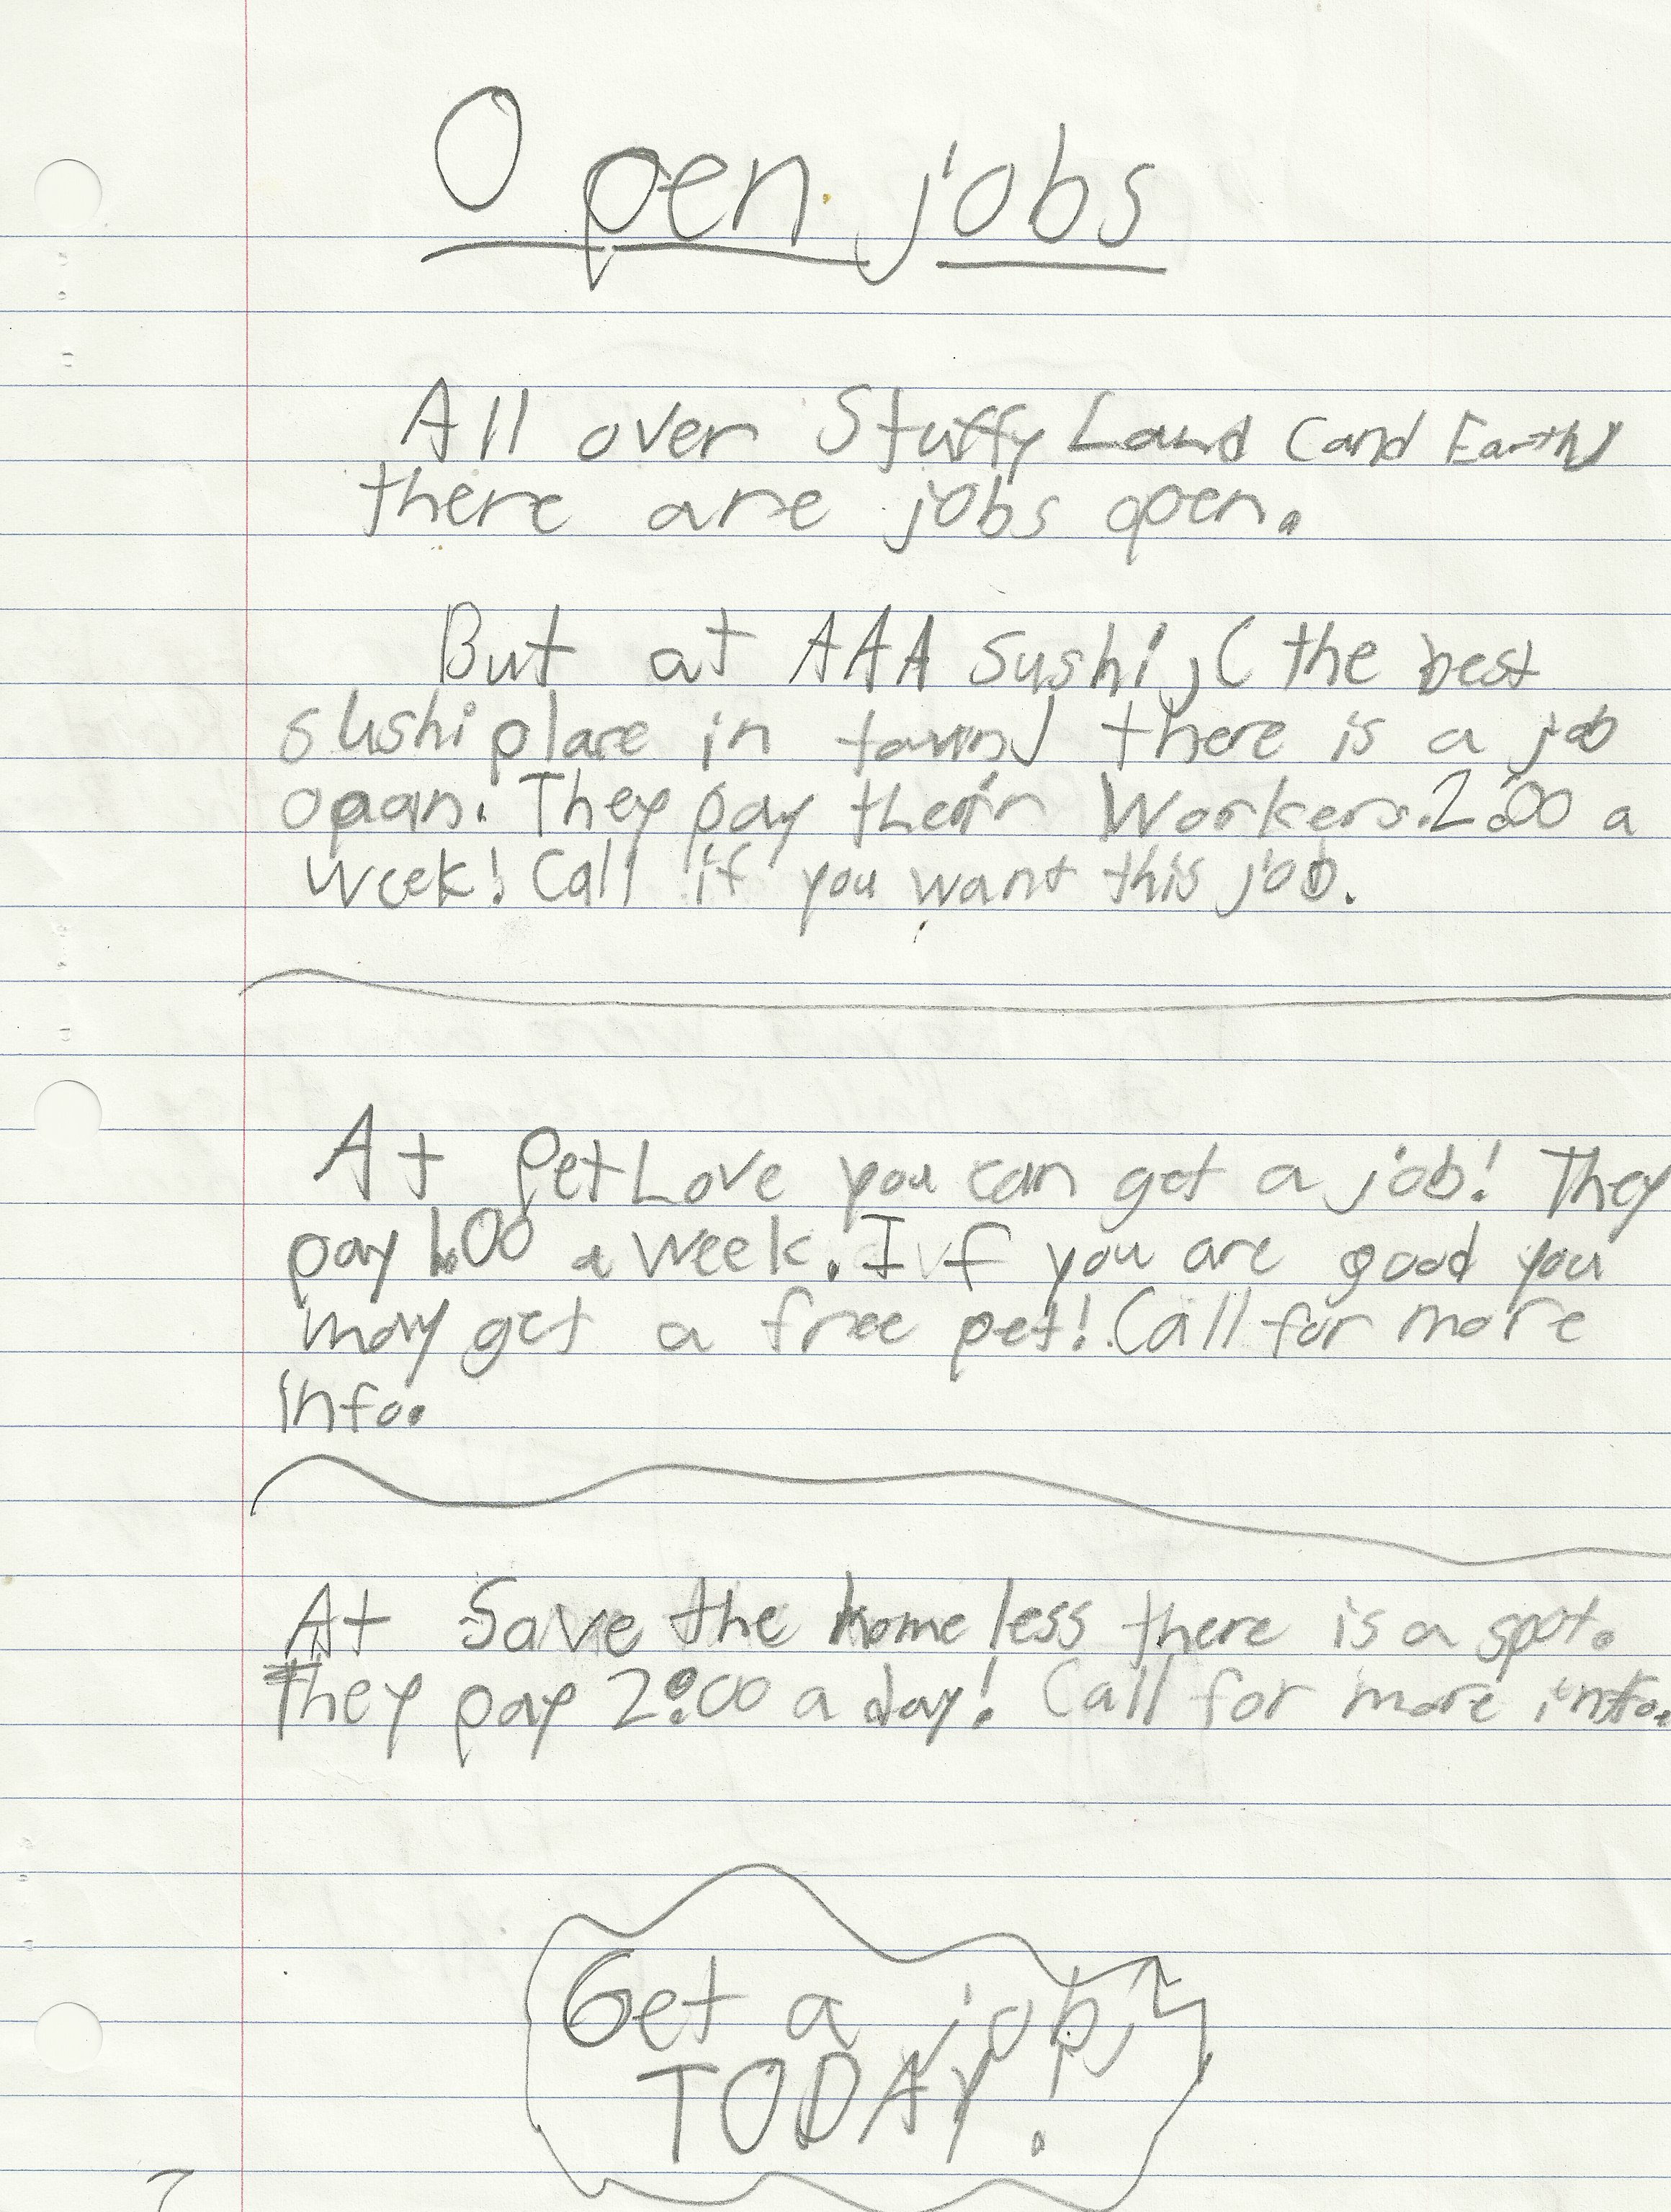 Open jobs
All over Stuffy Land (and Earth)
there are jobs open.
But at AAA Sushi, (the best
sushi place in town) there is a job
opan. They pay their Workers 2.00 a
week! Call if you want this job.
At Pet Love you can get a job! They
pay 1.00 a week. If you are good you
may get a free pet! Call for more
info.
At Save the homeless there is a spot.
They pay 2.00 a day! Call for more info.
Get a job,
TODAY!